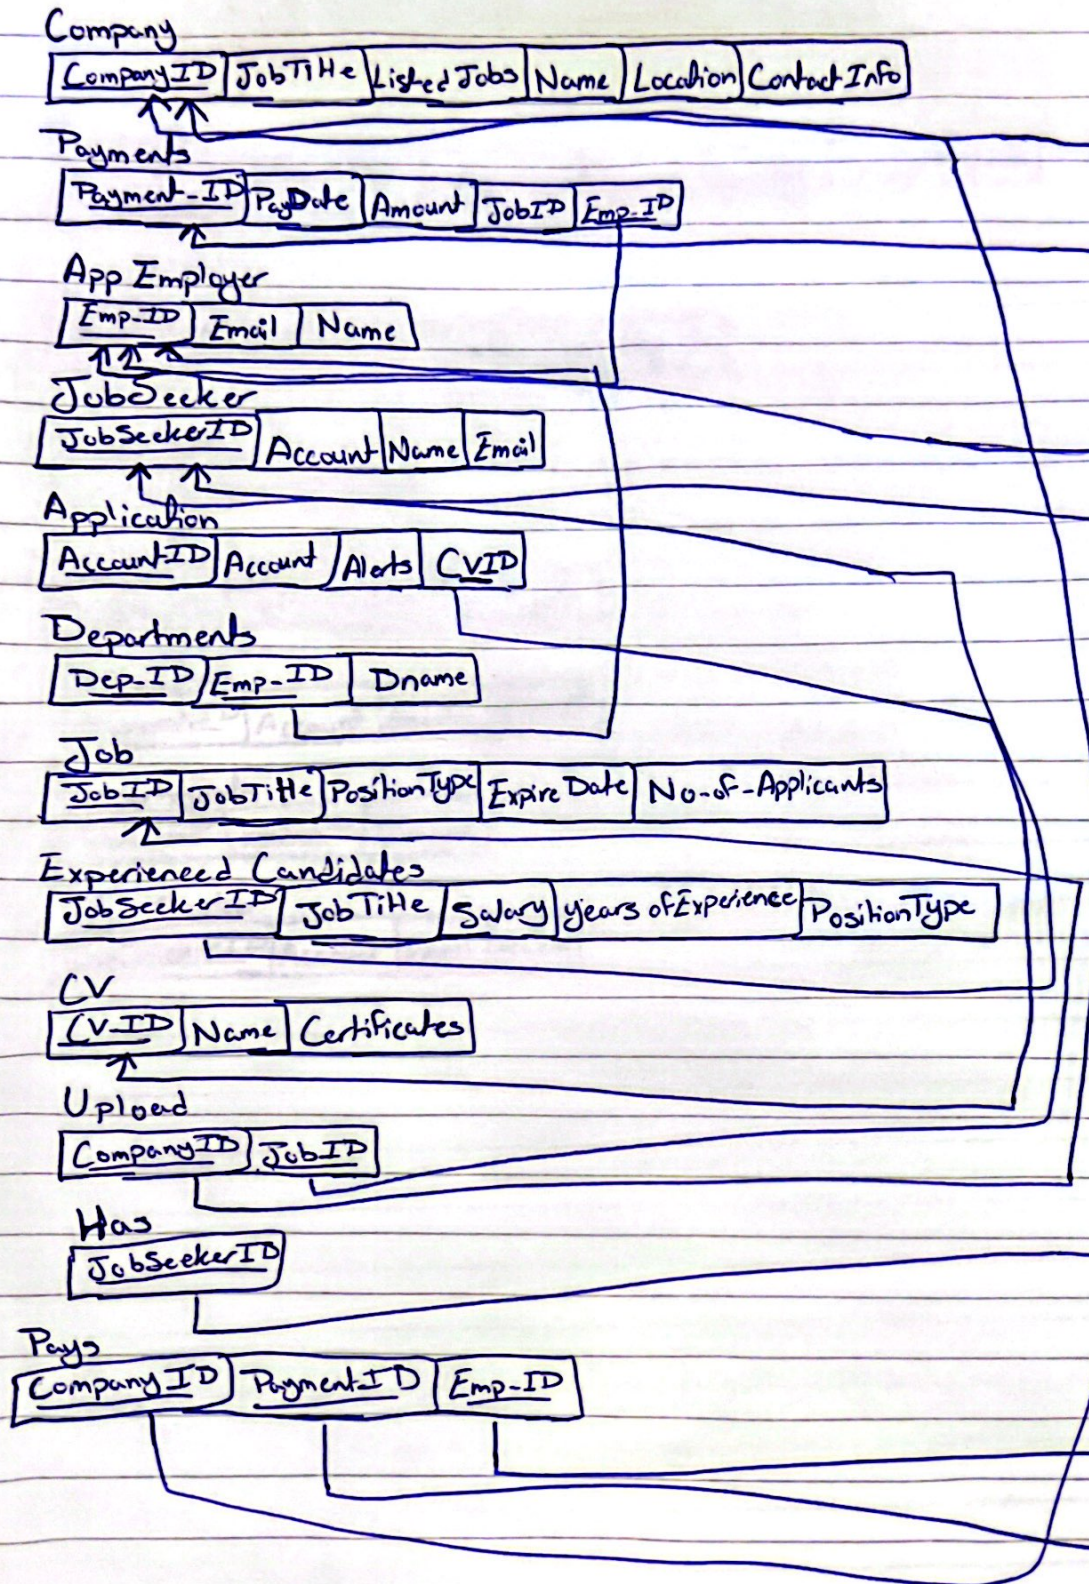 Company
CompanyID JobTitle Listed Jobs Name Location Contact Info
Payments
Payment-ID PayDate Amount JobID Emp-ID
App Employer
Emp-ID Email Name
JobSeeker
JobSeekerID Account Name Email
Application
AccountID Account Alerts CVID
Departments
Dep-ID Emp-ID Dname
Job
JobID JobTitle PositionType Expire Date No-of-Applicants
Experienced Candidates
JobSeekerID JobTitle Salary years of Experience PositionType
CV
CV-ID Name Certificates
Upload
CompanyID JobID
Has
JobSeekerID
Pays
CompanyID PaymentID Emp-ID